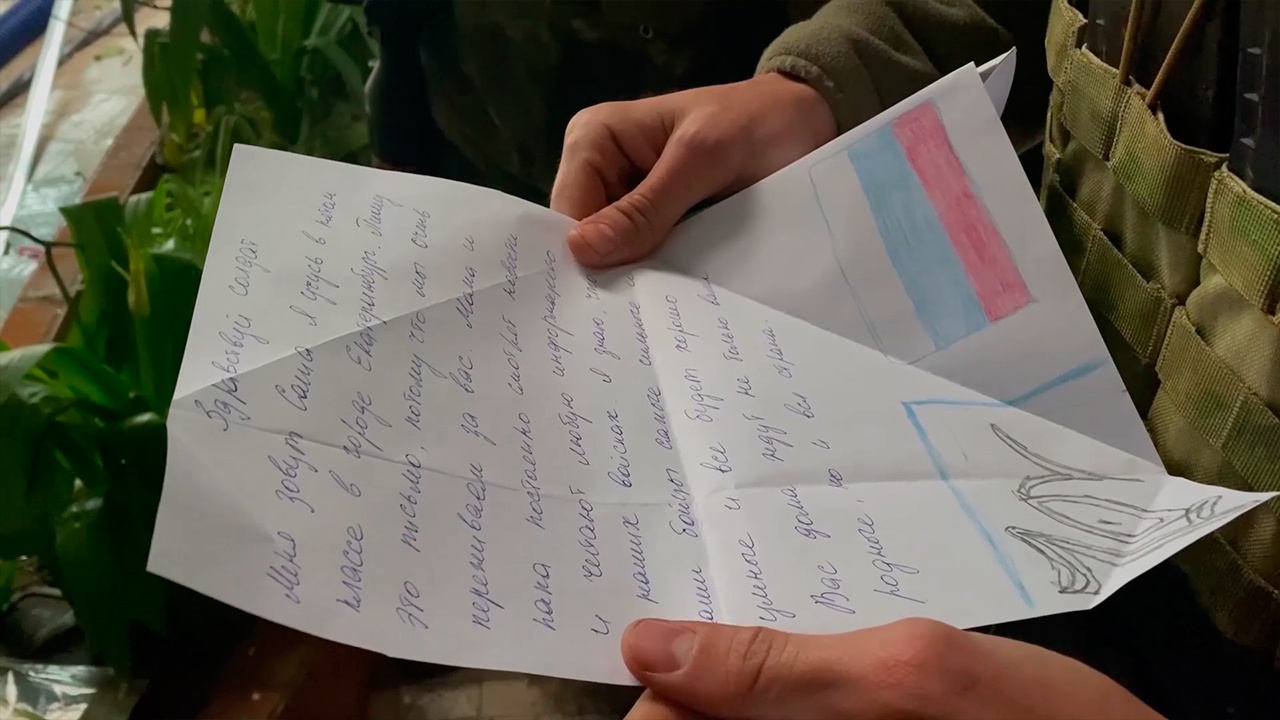 Здравствуй солдат
Меня зовут Саша я учусь в
классе в городе Екатеринбург. Пишу
это письмо, потому что мы очень
переживаем за вас. Мама и
папа постоянно смотрят новости
и читают любую информацию
наших войсках. Я знаю,
бойцы самые сильные
умные и все будет хорошо
Вас дома ждут не только
родные, но и вся страна.